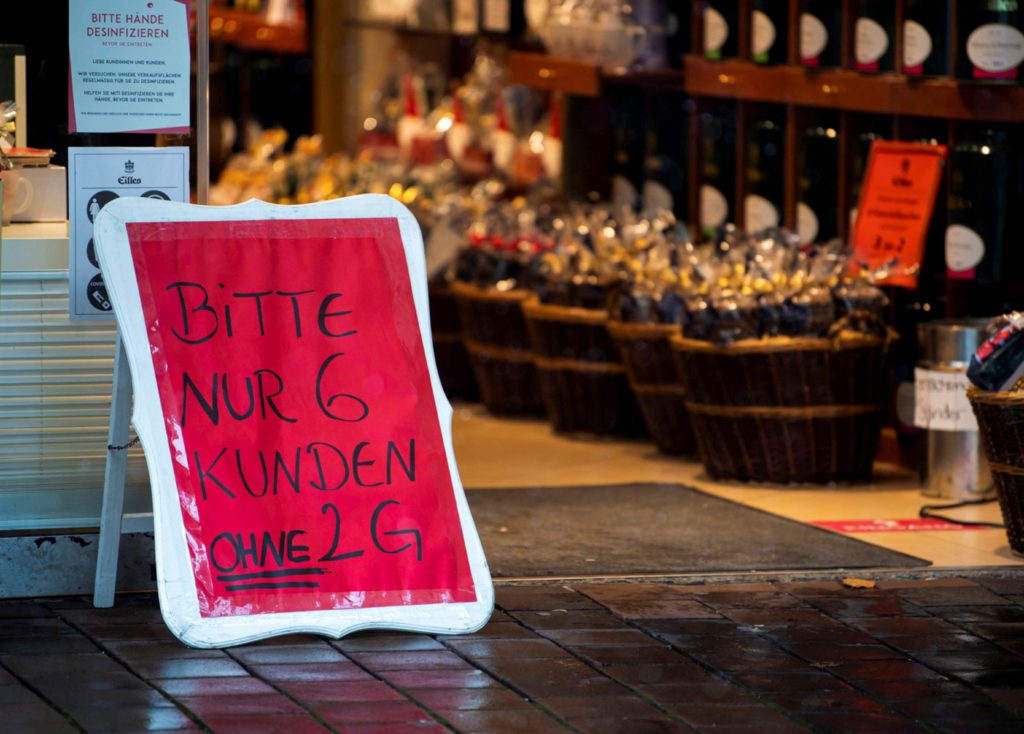 BITTE HÄNDE
DESINFIZIEREN
BEVOR SIE EINTRETEN.
LIEBE KUNDINNEN UND KUNDEN,
WIR VERSUCHEN, UNSERE VERKAUFSFLÄCHEN
REGELMÄSSIG FÜR SIE ZU DESINFIZIEREN.
HELFEN SIE MIT! DESINFIZIEREN SIE IHRE
HÄNDE, BEVOR SIE EINTRETEN.
Eilles
BiTTE
NUR 6
KUNDEN
OHNE 2G
Eilles